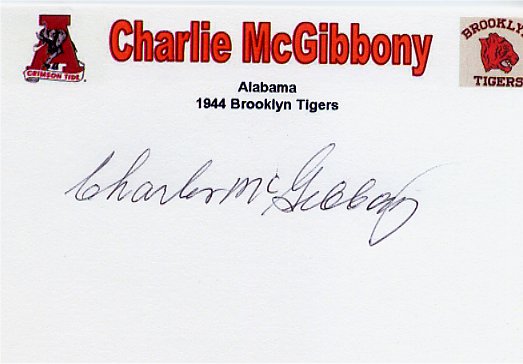 A
CRIMSON TIDE
Charlie McGibbony
BROOKLYN
TIGERS
Alabama
1944 Brooklyn Tigers
Charles McGibbony